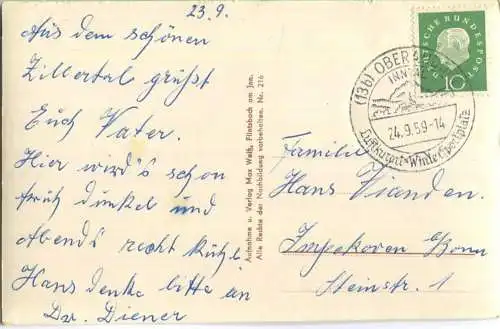 23.9.
Aus dem schönen
Zillertal grüßt
Euch Vater.
Hier wird's schon
früh dunkel und
Abends recht kühl
Hans denke bitte an
Dr. Diener
Aufnahme u. Verlag Max Weiß, Flintsbach am Inn.
Alle Rechte der Nachbildung vorbehalten. Nr. 216
DEUTSCHE BUNDESPOST
10
(13b) OBERAUDORF
INNTAL
24.9.59-14
Luftkurort u. Wintersportplatz
Familie
Hans Vianden.
Impekoven b/Bonn
Steinstr. 1